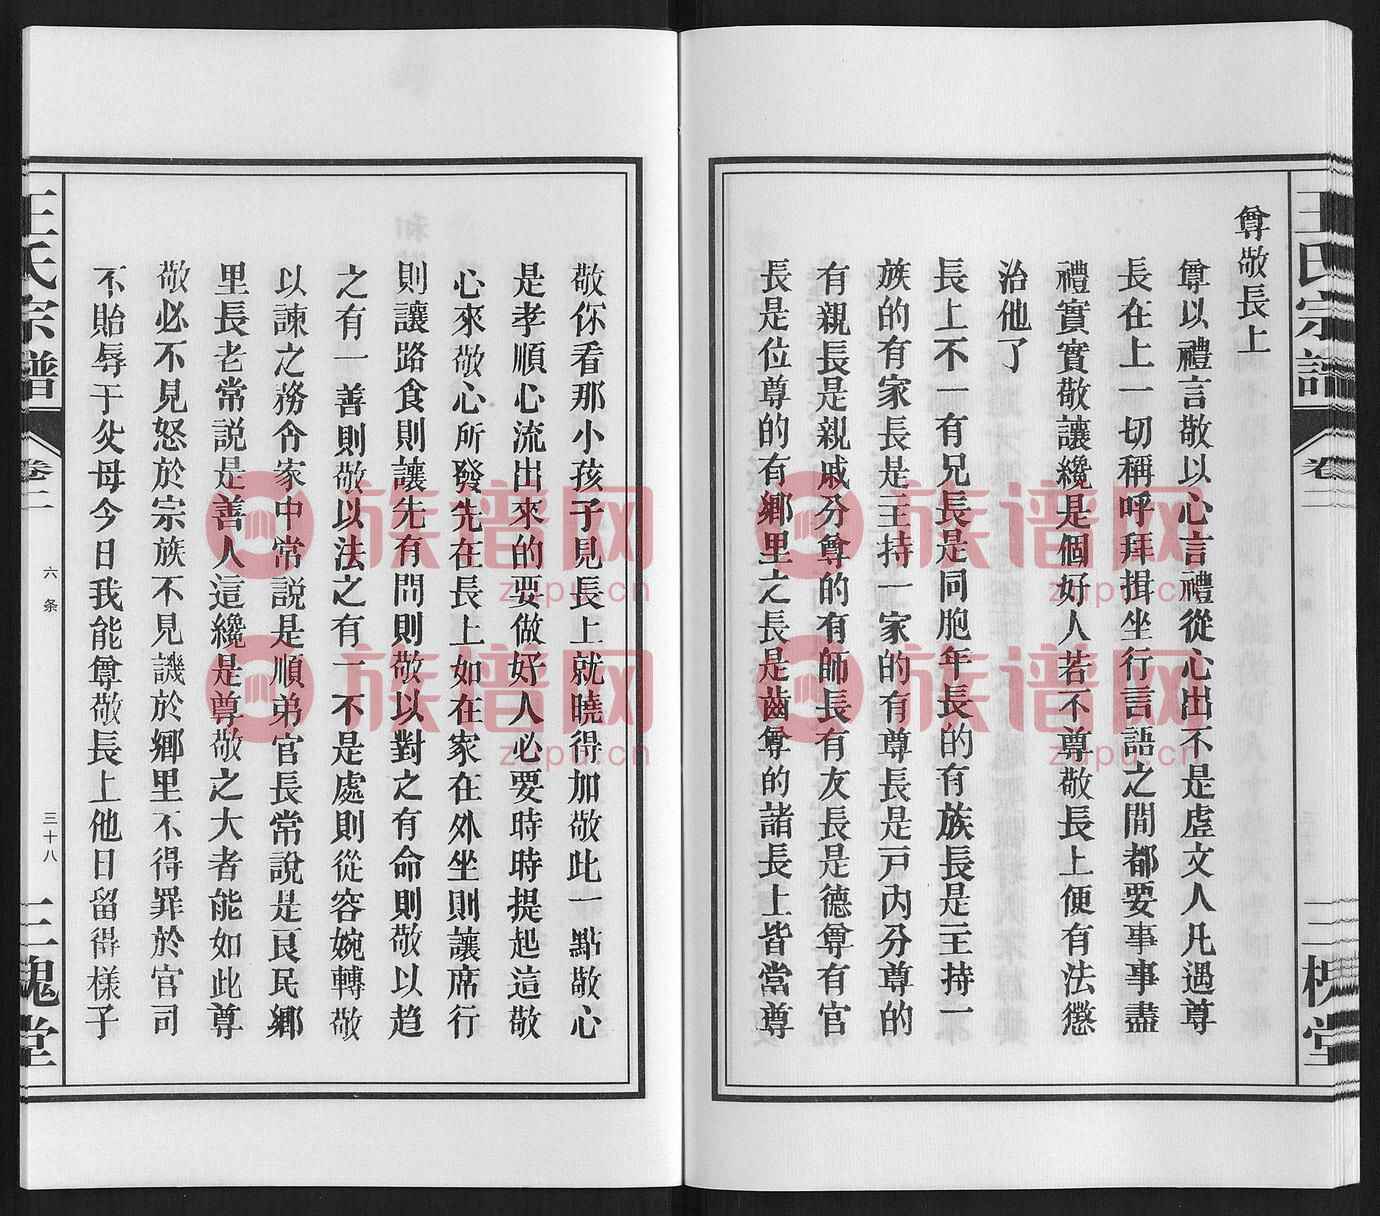 王氏宗譜
卷二
三槐堂
尊敬長上
尊以禮言敬以心言禮從心出不是虛文人凡遇尊
長在上一切稱呼拜揖坐行言語之間都要事事盡
禮實實敬讓纔是個好人若不尊敬長上便有法懲
治他了
長上不一有兄長是同胞年長的有族長是主持一
族的有家長是主持一家的有尊長是戸內分尊的
有親長是親戚分尊的有師長有友長是德尊有官
長是位尊的有鄉里之長是齒尊的諸長上皆當尊
敬你看那小孩子見長上就曉得加敬此一點敬心
是孝順心流出來的要做好人必要時時提起這敬
心來敬心所發先在長上如在家在外坐則讓席行
則讓路食則讓先有問則敬以對之有命則敬以趋
之有一善則敬以法之有一不是處則從容婉轉敬
以諫之務令家中常說是順弟官長常說是良民鄉
里長老常說是善人這纔是尊敬之大者能如此尊
敬必不見怒於宗族不見譏於鄉里不得罪於官司
不貽辱于父母今日我能尊敬長上他日留得樣子
王氏宗譜
卷二
六条
三十八
三槐堂
族谱网
zupu.cn
族谱网
zupu.cn
族谱网
zupu.cn
族谱网
zupu.cn